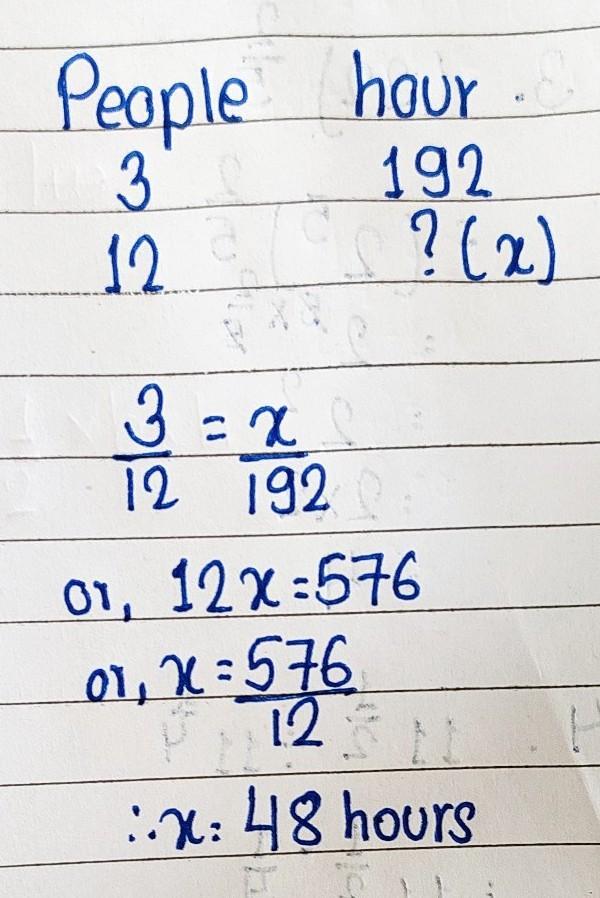 People hour.
3 192
12 ?(x)
3/12 = x/192
or, 12x=576
or, x=576/12
∴x: 48 hours